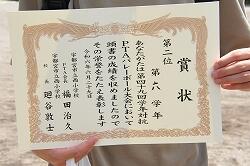 賞状
第二位
第六学年
あなたがたは第四十九回学年対抗
PTAバレーボール大会において
頭書の成績を収めましたので
その栄誉をたたえ表彰します
令和六年六月二十九日
宇都宮市立西小学校
PTA会長 福田治久
宇都宮市立西小学校
校長 廻谷敦士